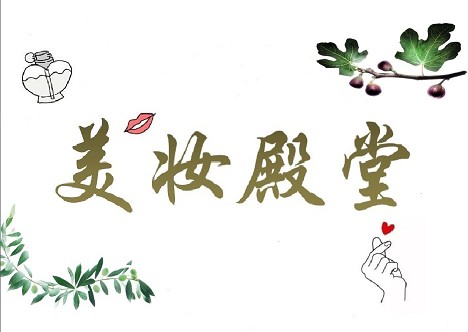 美妆殿堂